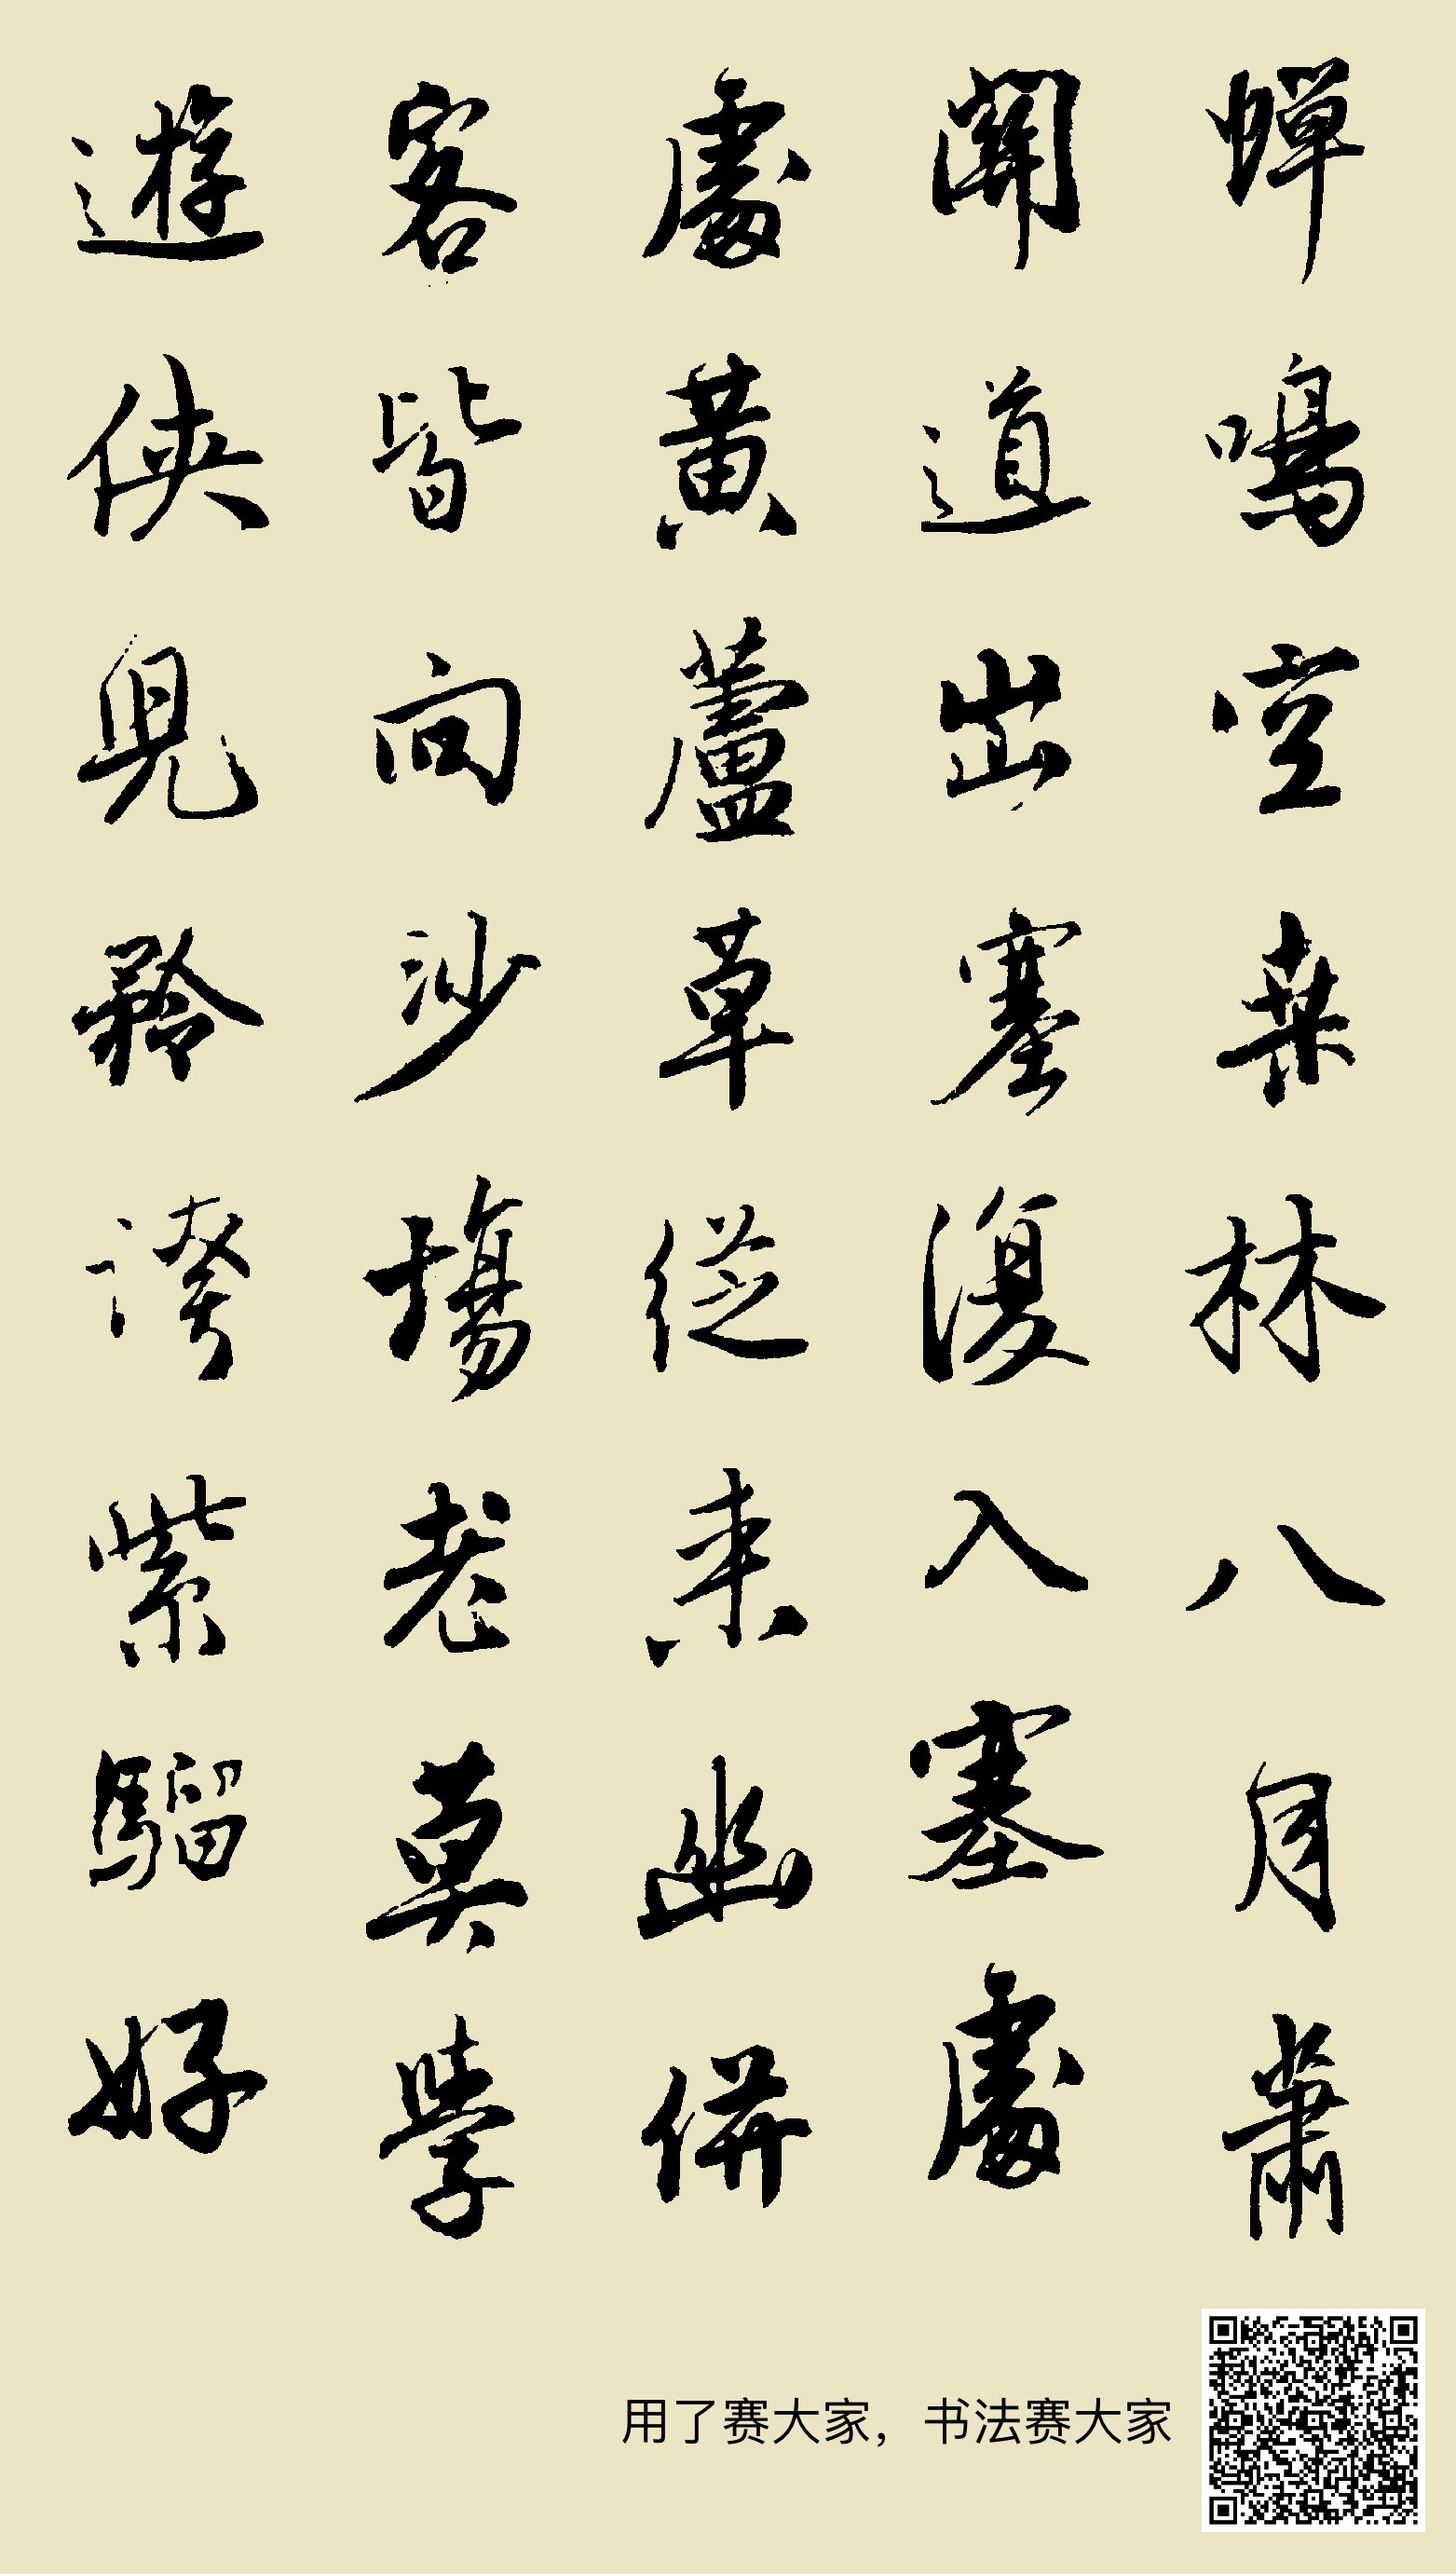 蟬鳴空桑林八月蕭
關道出塞復入塞處
處黃蘆草從來幽併
客皆向沙場老莫學
遊俠兒矜誇紫騮好
用了赛大家，书法赛大家